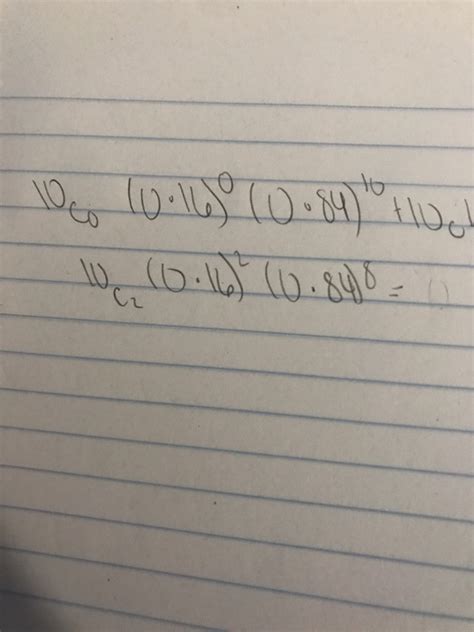 10C0 (0.16)^0 (0.84)^10 + 10C1
10C2 (0.16)^2 (0.84)^8 =